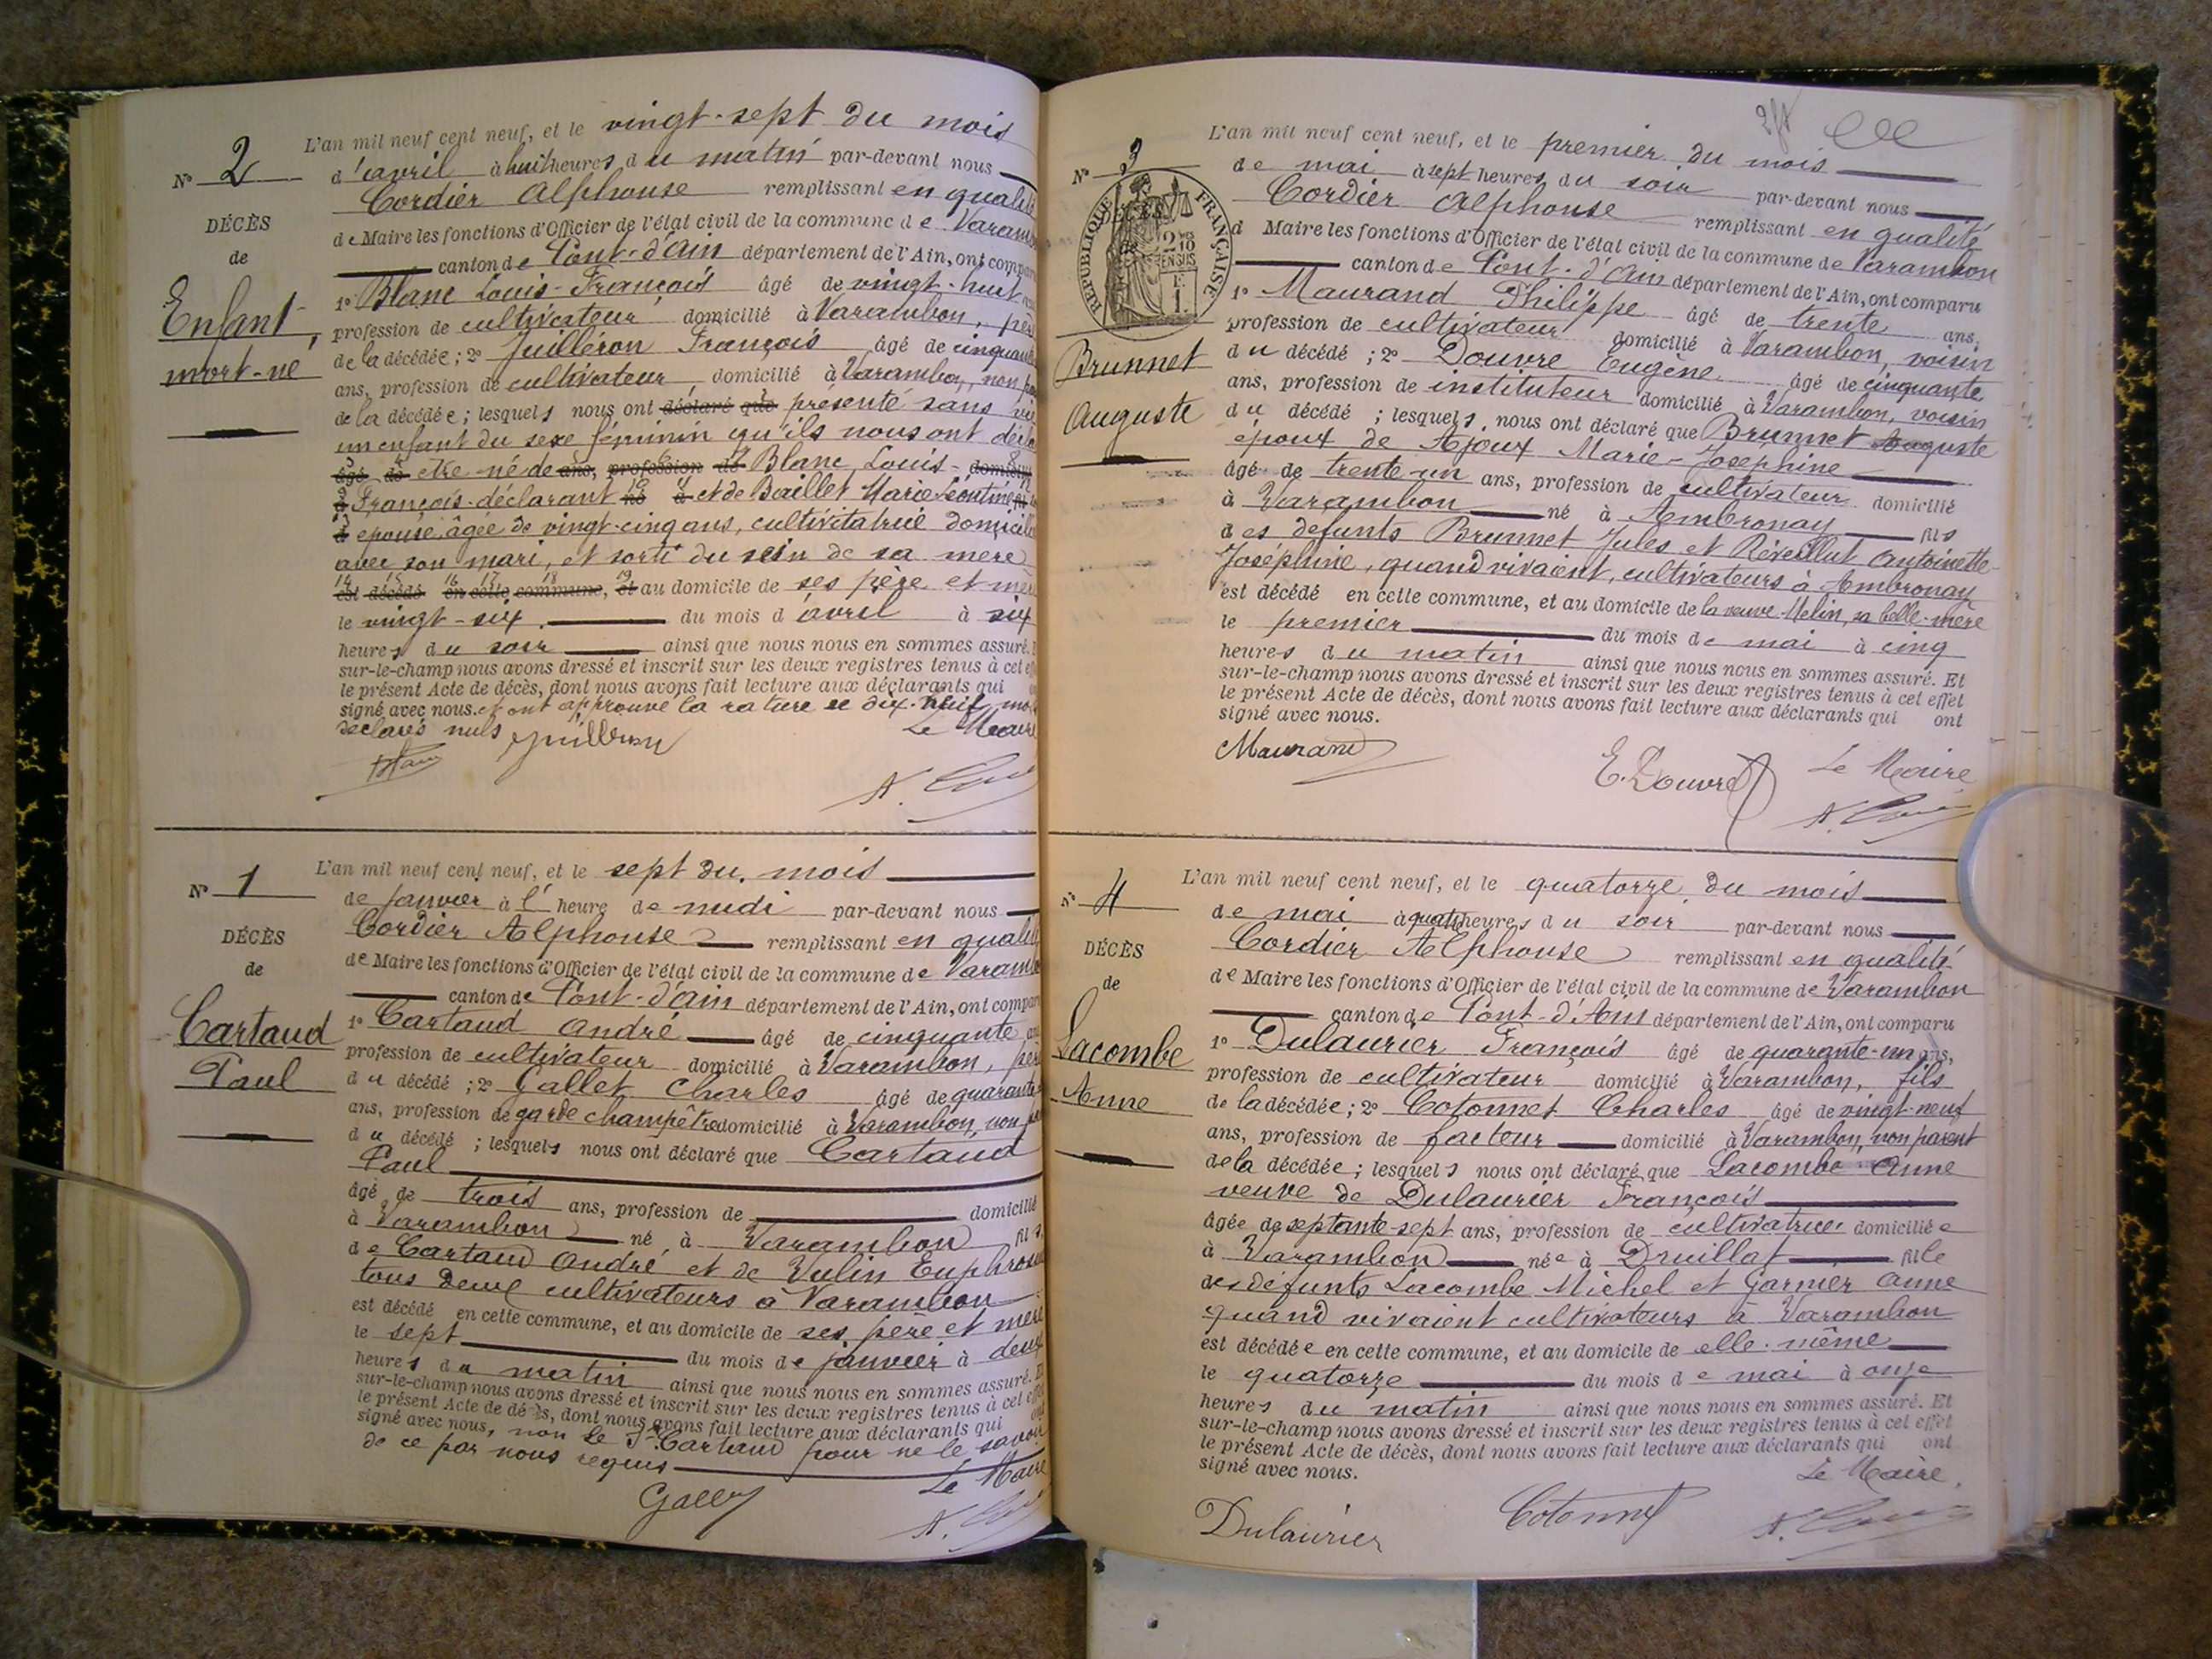 N° 2
DÉCÈS
de
Enfant
mort-né
L'an mil neuf cent neuf, et le vingt-sept du mois
d'avril à huit heures du matin par-devant nous
Cordier Alphonse remplissant en qualité
de Maire les fonctions d'Officier de l'état civil de la commune de
canton de Pont-d'Ain département de l'Ain, ont
1° Blanc Louis-François âgé de vingt-huit
profession de cultivateur domicilié à Varambon, père
de la décédée ; 2° Juilleron François âgé de cinquante
ans, profession de cultivateur domicilié à Varambon, non
de la décédée ; lesquels nous ont déclaré que présenté sans
un enfant du sexe féminin qu'ils nous ont
âgé de être né de ans, profession de Blanc Louis-
François déclarant né à et de Baillet Marie Léontine
épouse âgée de vingt-cinq ans, cultivatrice
avec son mari, et sorti du sein de sa mère
est décédé en cette commune, et au domicile de ses père et
le vingt-six du mois d'avril à six
heures du soir ainsi que nous nous en sommes assuré.
sur-le-champ nous avons dressé et inscrit sur les deux registres tenus à cet
le présent Acte de décès, dont nous avons fait lecture aux déclarants qui
signé avec nous. et ont approuvé la rature de dix-neuf
déclarés nuls
Le Maire
Juilleron
N° 1
DÉCÈS
de
Cartaud
Paul
L'an mil neuf cent neuf, et le sept du mois
de janvier à l'heure de midi par-devant nous
Cordier Alphonse remplissant en qualité
de Maire les fonctions d'Officier de l'état civil de la commune de
canton de Pont-d'Ain département de l'Ain, ont
1° Cartaud André âgé de cinquante
profession de cultivateur domicilié à Varambon, père
du décédé ; 2° Gallet Charles âgé de quarante
ans, profession de garde champêtre domicilié à Varambon, non
du décédé ; lesquels nous ont déclaré que Cartaud
Paul
âgé de trois ans, profession de domicilié
à Varambon né à Varambon fils
de Cartaud André et de Vulin
tous deux cultivateurs à Varambon
est décédé en cette commune, et au domicile de ses père et mère
le sept du mois de janvier à deux
heures du matin ainsi que nous nous en sommes assuré.
sur-le-champ nous avons dressé et inscrit sur les deux registres tenus à cet
le présent Acte de décès, dont nous avons fait lecture aux déclarants qui
signé avec nous, non le Sr Cartaud pour ne le savoir
de ce par nous requis
Le Maire
N° 3
DÉCÈS
RÉPUBLIQUE FRANÇAISE
Brunnet
Auguste
L'an mil neuf cent neuf, et le premier du mois
de mai à sept heures du soir par-devant nous
Cordier Alphonse remplissant en qualité
d Maire les fonctions d'Officier de l'état civil de la commune de Varambon
canton de Pont-d'Ain département de l'Ain, ont comparu
1° Maurand Philippe âgé de trente ans,
profession de cultivateur domicilié à Varambon, voisin
du décédé ; 2° Douvre Eugène âgé de cinquante
ans, profession de instituteur domicilié à Varambon, voisin
du décédé ; lesquels nous ont déclaré que Brunnet Auguste
époux de Ajoux Marie-Joséphine
âgé de trente-un ans, profession de cultivateur domicilié
à Varambon né à Ambronay fils
des défunts Brunnet Jules et Réveillut Antoinette-
Joséphine, quand vivaient, cultivateurs à Ambronay
est décédé en cette commune, et au domicile de la veuve Melin, sa belle-mère
le premier du mois de mai à cinq
heures du matin ainsi que nous nous en sommes assuré. Et
sur-le-champ nous avons dressé et inscrit sur les deux registres tenus à cet effet
le présent Acte de décès, dont nous avons fait lecture aux déclarants qui ont
signé avec nous.
Maurand
E. Douvre
Le Maire
N° 4
DÉCÈS
de
Lacombe
Anne
L'an mil neuf cent neuf, et le quatorze du mois
de mai à quatre heures du soir par-devant nous
Cordier Alphonse remplissant en qualité
de Maire les fonctions d'Officier de l'état civil de la commune de Varambon
canton de Pont-d'Ain département de l'Ain, ont comparu
1° Dulaurier François âgé de quarante-un ans,
profession de cultivateur domicilié à Varambon, fils
de la décédée ; 2° Cotonnet Charles âgé de vingt-neuf
ans, profession de facteur domicilié à Varambon, non parent
de la décédée ; lesquels nous ont déclaré que Lacombe Anne
veuve de Dulaurier François
âgée de septante-sept ans, profession de cultivatrice domiciliée
à Varambon née à Druillat fille
des défunts Lacombe Michel et Garnier Anne
quand vivaient cultivateurs à Varambon
est décédée en cette commune, et au domicile de elle-même
le quatorze du mois de mai à onze
heures du matin ainsi que nous nous en sommes assuré. Et
sur-le-champ nous avons dressé et inscrit sur les deux registres tenus à cet effet
le présent Acte de décès, dont nous avons fait lecture aux déclarants qui ont
signé avec nous.
Le Maire
Dulaurier
Cotonnet